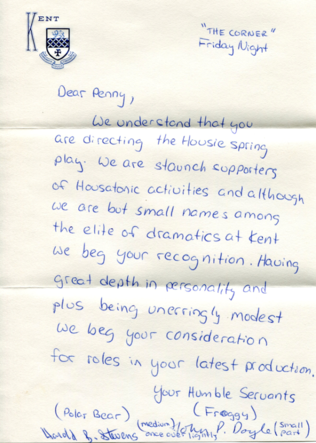 KENT
"THE CORNER"
Friday Night
Dear Penny,
We understand that you
are directing the Housie spring
play. We are staunch supporters
of Housatonic activities and although
we are but small names among
the elite of dramatics at Kent
we beg your recognition. Having
great depth in personality and
plus being unerringly modest
we beg your consideration
for roles in your latest production.
Your Humble Servants
(Polar Bear) (Froggy)
Stevens (medium) once over lightly / John P. Doyle (small part)